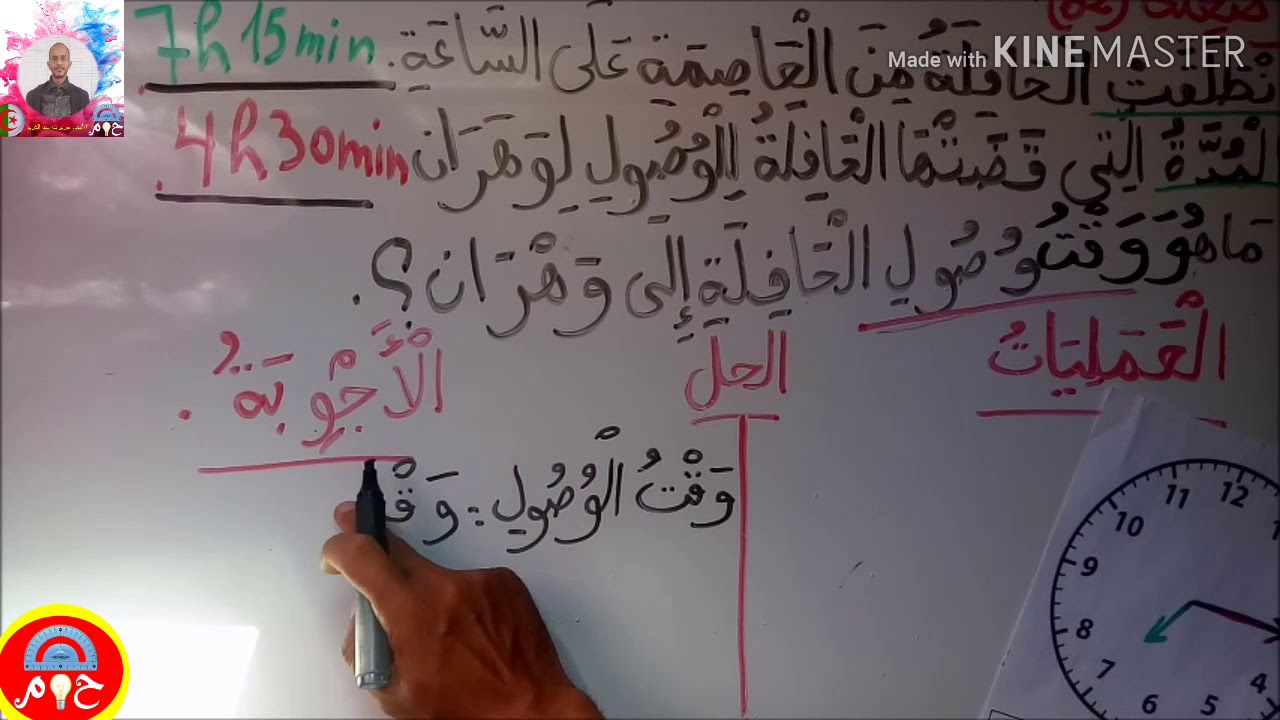 Made with KINEMASTER
نْطَلَقَتِ الْحَافِلَةُ مِنَ الْعَاصِمَةِ عَلَى السَّاعَةِ. 7h 15min
لْمُدَّةُ الَّتِي قَضَتْهَا الْحَافِلَةُ لِلْوُصُولِ لِوَهَرَان 4h 30min.
مَاهُوَ وَقْتُ وُصُولِ الْحَافِلَةِ إِلَى وَهْرَان؟.
الْعَمَلِيَاتُ الحل الْأَجْوِبَةُ.
وَقْتُ الْوُصُولِ: وَقْ
11 12
10
9
8
7
6
5
4
ح م
ح م